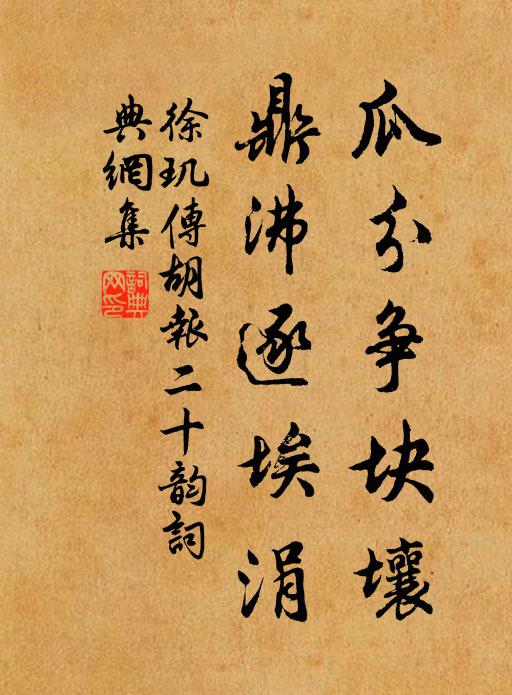 瓜分争块壤
鼎沸逐埃涓
徐玑傳胡報二十韵詞
典網集
詞典网印